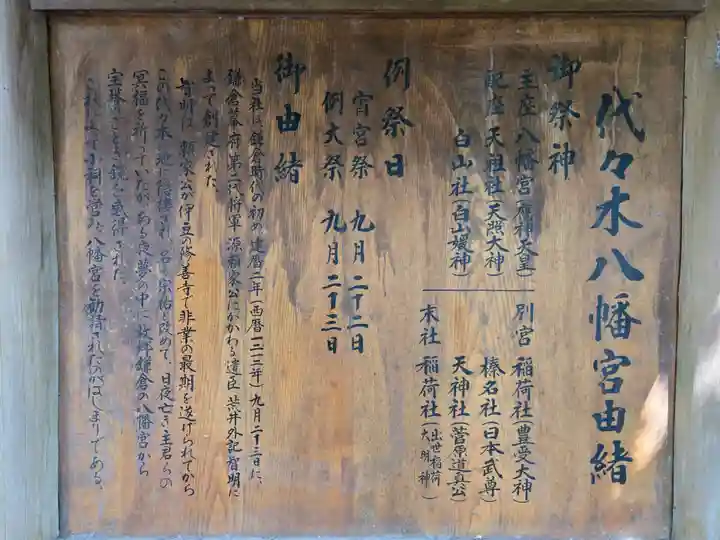 代々木八幡宮由緒
御祭神
主座 八幡宮（応神天皇）
配座 天祖社（天照大神）
白山社（白山媛神）
別宮 稲荷社（豊受大神）
榛名社（日本武尊）
天神社（菅原道真公）
末社 稲荷社（出世稲荷大明神）
例祭日
宵宮祭 九月二十二日
例大祭 九月二十三日
御由緒
当社は、鎌倉時代の初め、建暦二年（西暦一二一二年）九月二十三日に、
鎌倉幕府第二代将軍 源頼家公にかかわる遺臣 荒井外記智明に
よって創建された。
智明は、頼家公が伊豆の修善寺で非業の最期を遂げられてから
この代々木の地に隠棲され、名を宗祐と改めて、日夜亡き主君らの
冥福を祈っていたが、ある夜夢の中に故郷鎌倉の八幡宮から
宝珠のごとき鏡を感得された。
これによって小祠を営み、八幡宮を勧請されたのがはじまりである。